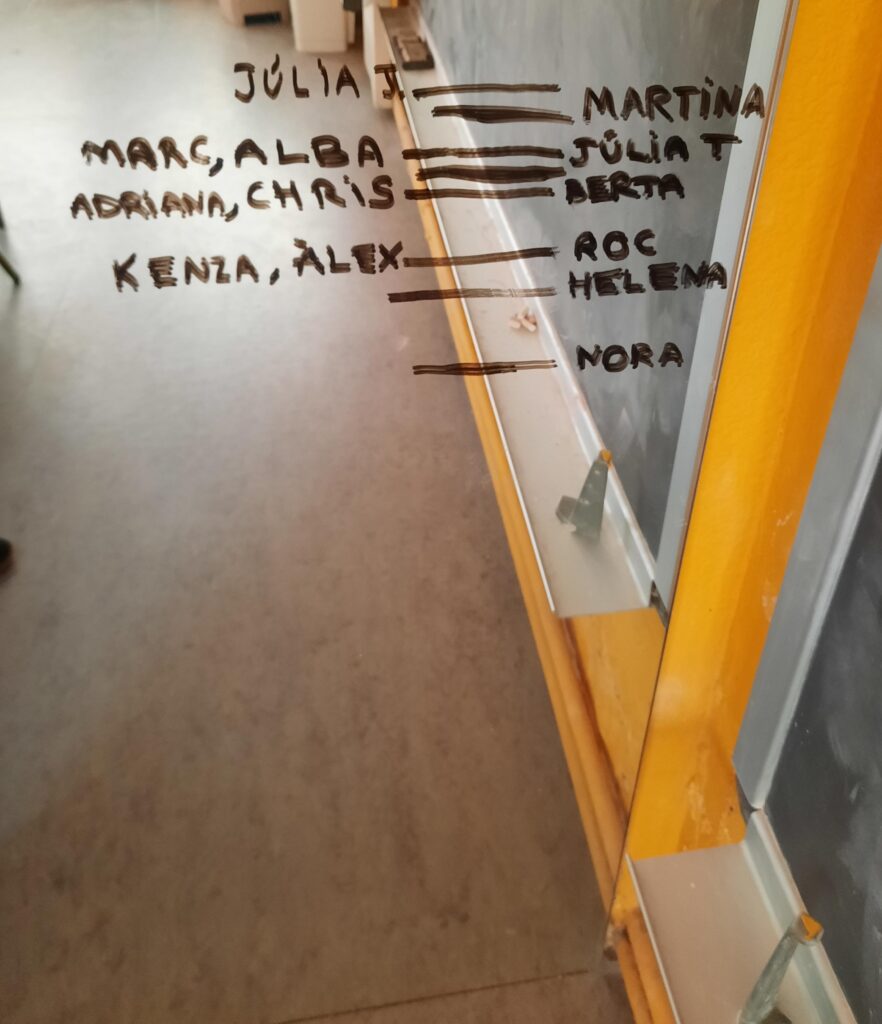 JÚLIA J.
MARTINA
MARC, ALBA JÚLIA T
ADRIANA, CHRIS BERTA
KENZA, ÀLEX ROC
HELENA
NORA